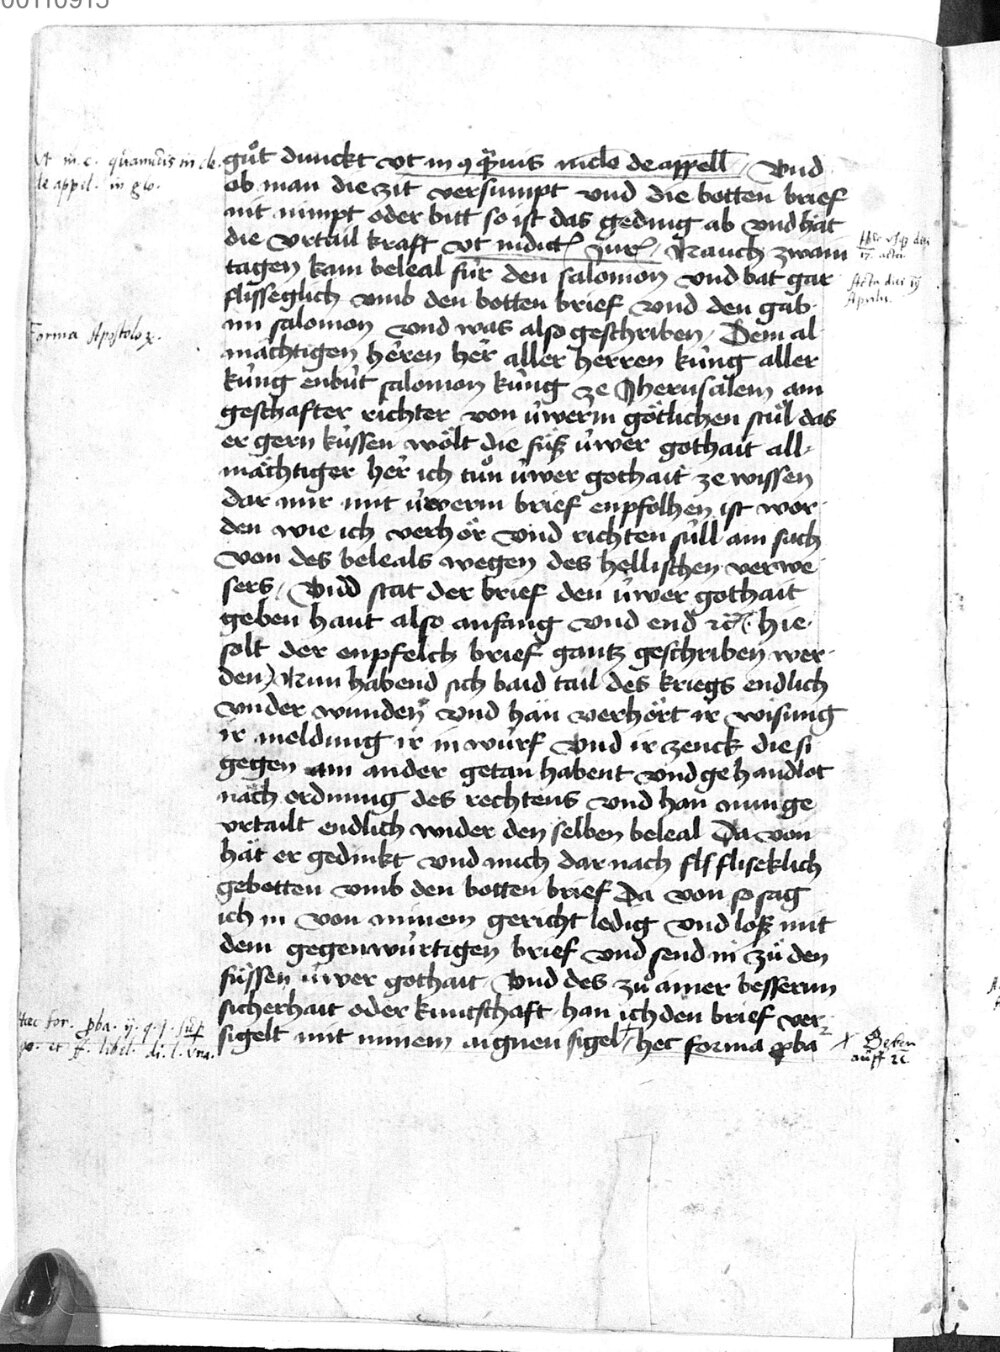 00110915
gůt dunckt vt in q̄ p̄uis nielo de appell / Vnd
ob man die zit versumpt vnd die botten brief
nit nimpt oder bitt so ist das geding ab vnd hät
die vrtail kraft vt in dict jur / Nauch zwain
tagen kam beleal für den salomon vnd bat gar
flisseglich vmb den botten brief vnd den gab
im salomon vnd was also geschriben / Dem al
mächtigen heren her aller herren küng aller
küng enbüt salomon küng ze Jherusalem ain
geschafter richter von üwerm götlichen stůl das
er gern küssen wölt die füß üwer gothait all-
mächtiger her ich tůn üwer gothait ze wissen
dar mir mit üwerm brief enpfolhen ist wor
den wie ich verhör vnd richten süll ain sach
von des beleals wegen des hellischen verwe
sers / Vnd stat der brief den üwer gothait
geben haut also anfang vnd end ꝛc hie
solt der enpfelch brief gantz geschriben wer
den) Nun habend sich baid tail des kriegs endlich
vnder wunden vnd hän verhört ir wisung
ir meldung ir inwürf vnd ir zenck die si
gegen ain ander getan habent vnd gehandlot
nach ordnung des rechtens vnd han nun ge
vrtailt endlich wider den selben beleal Da von
hät er gedinkt vnd mich dar nach fliseklich
gebotten vmb den botten brief Da von so sag
ich in von minem gericht ledig vnd loß mit
dem gegenwürtigen brief vnd send in zů den
füssen üwer gothait Vnd des zů ainer besserun
sicherhait oder kuntschaft han ich den brief ver
sigelt mit minem aignen sigel / hec forma p̄ba
de appel. in glo.
Forma Apostolor.
Acta die
Aprilis.
Hec for. p̄ba. ij. q. j.
Geben
auff ꝛc